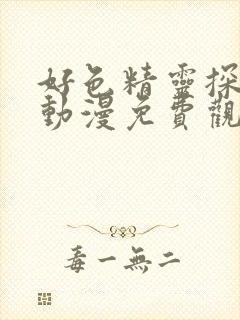 好色精靈探
動漫免費觀
毒一無二